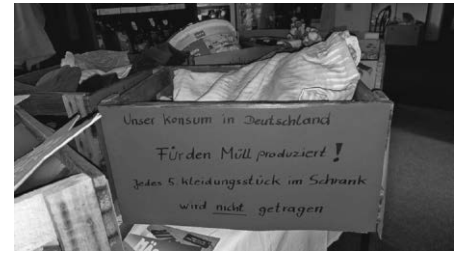 Unser Konsum in Deutschland
Für den Müll produziert !
Jedes 5. Kleidungsstück im Schrank
wird nicht getragen